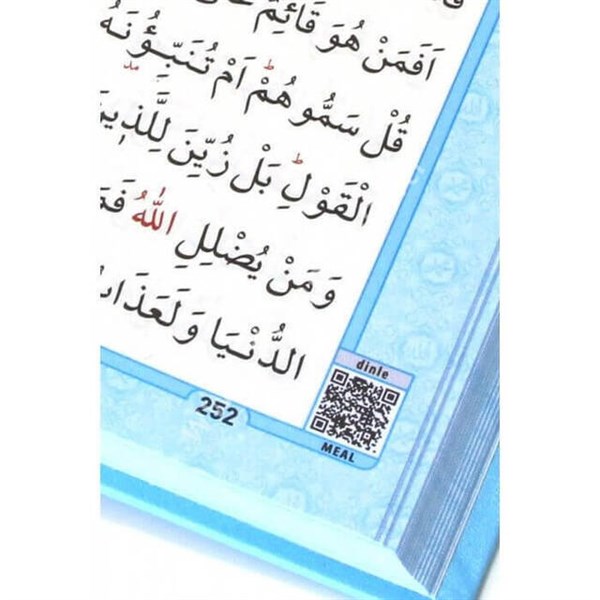 اَفَمَنْ هُوَ قَائِمٌ
قُلْ سَمُّوهُمْ اَمْ تُنَبِّؤُ۫نَهُ
الْقَوْلِ بَلْ زُيِّنَ لِلَّذ۪ينَ
وَمَنْ يُضْلِلِ اللّٰهُ
الدُّنْيَا وَلَعَذَابُ
dinle
252
MEAL